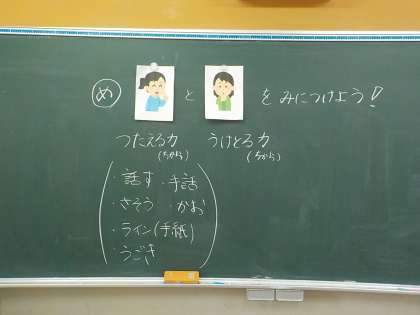 め と を みにつけよう!
つたえる力 うけとる力
(ちから) (ちから)
・話す ・手話
・さそう ・かお
・ライン(手紙)
・うごき